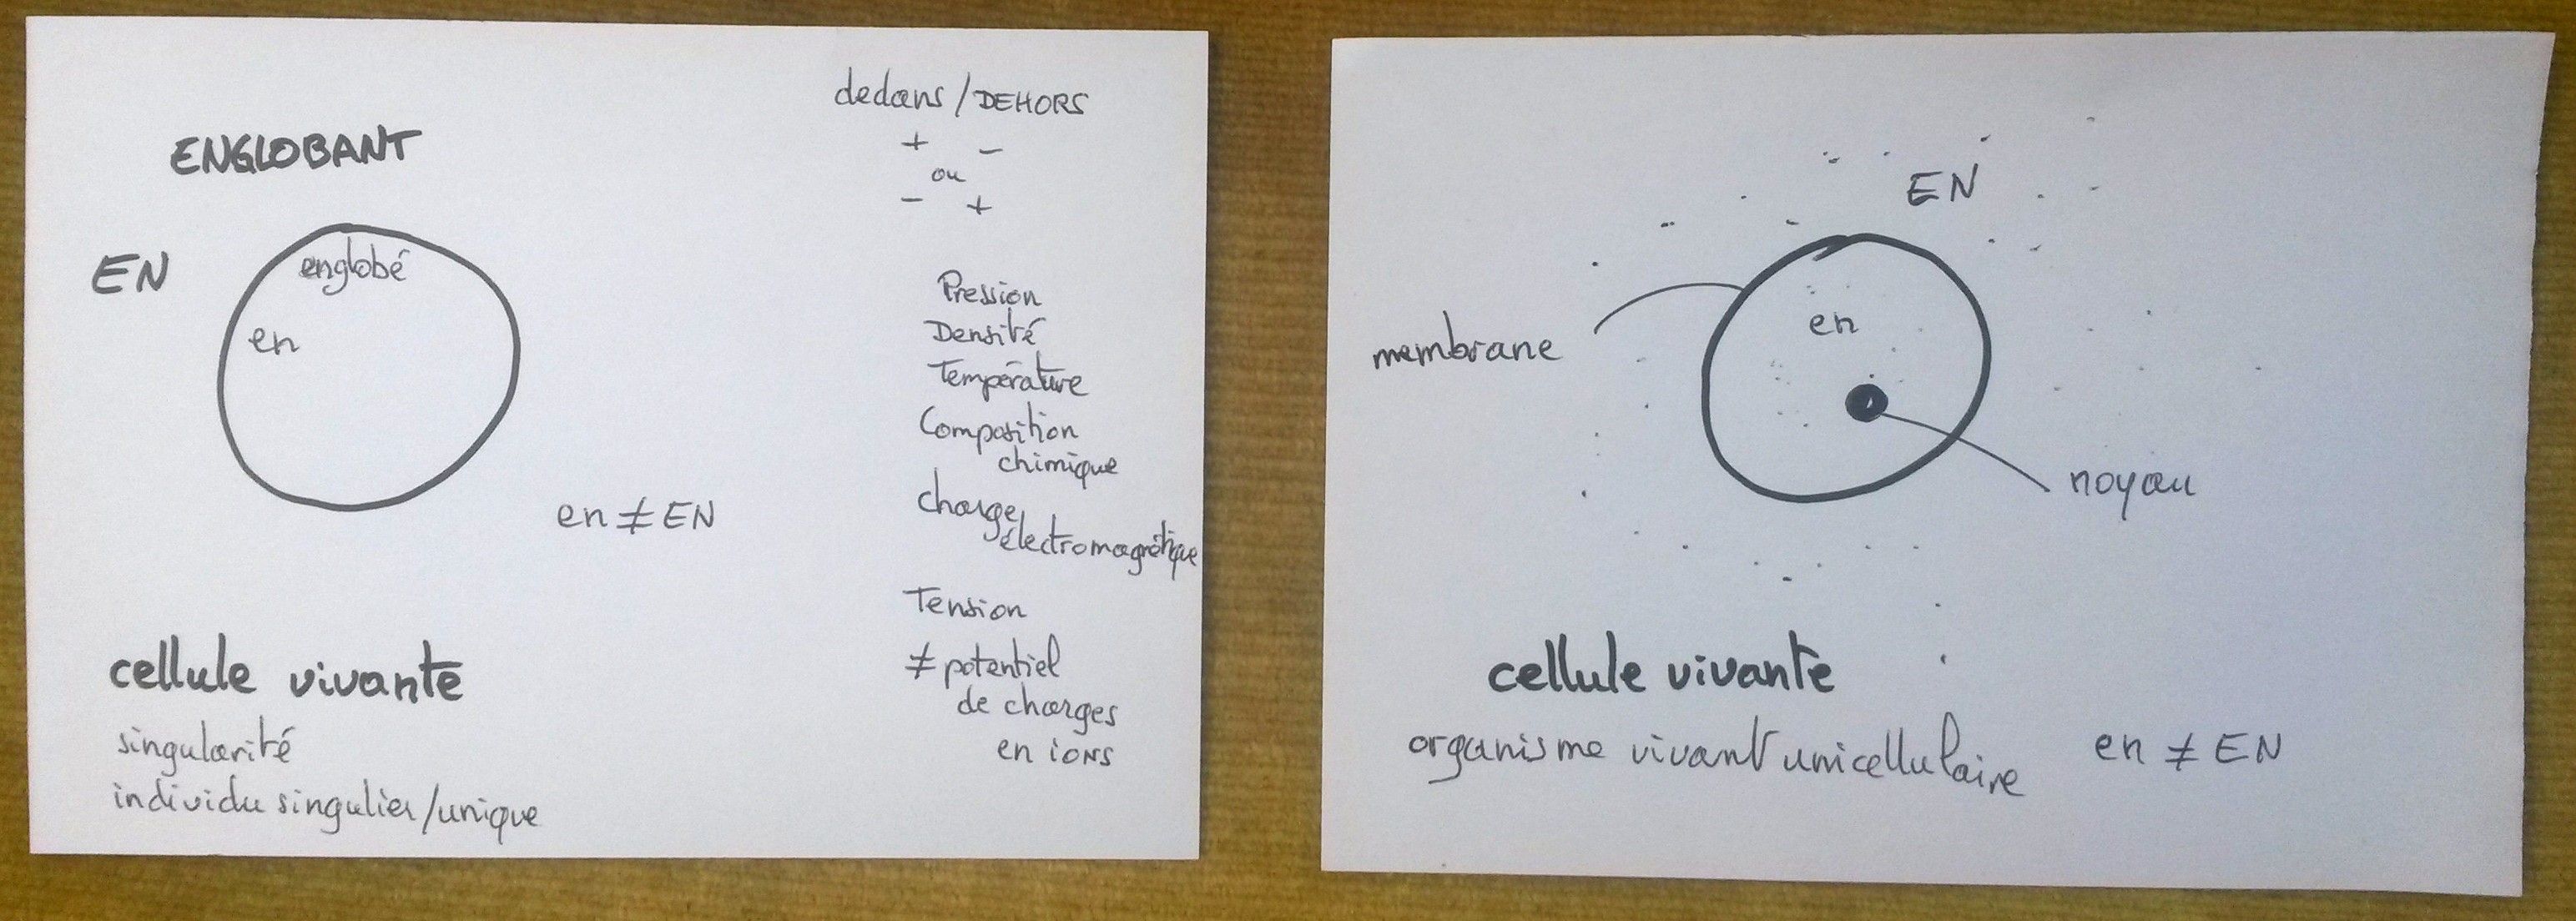 ENGLOBANT
EN
englobé
en
en ≠ EN
cellule vivante
singularité
individu singulier/unique
dedans / DEHORS
+ -
ou
- +
Pression
Densité
Température
Composition
chimique
charge
électromagnétique
Tension
≠ potentiel
de charges
en ions
EN
membrane
en
noyau
cellule vivante
organisme vivant unicellulaire
en ≠ EN